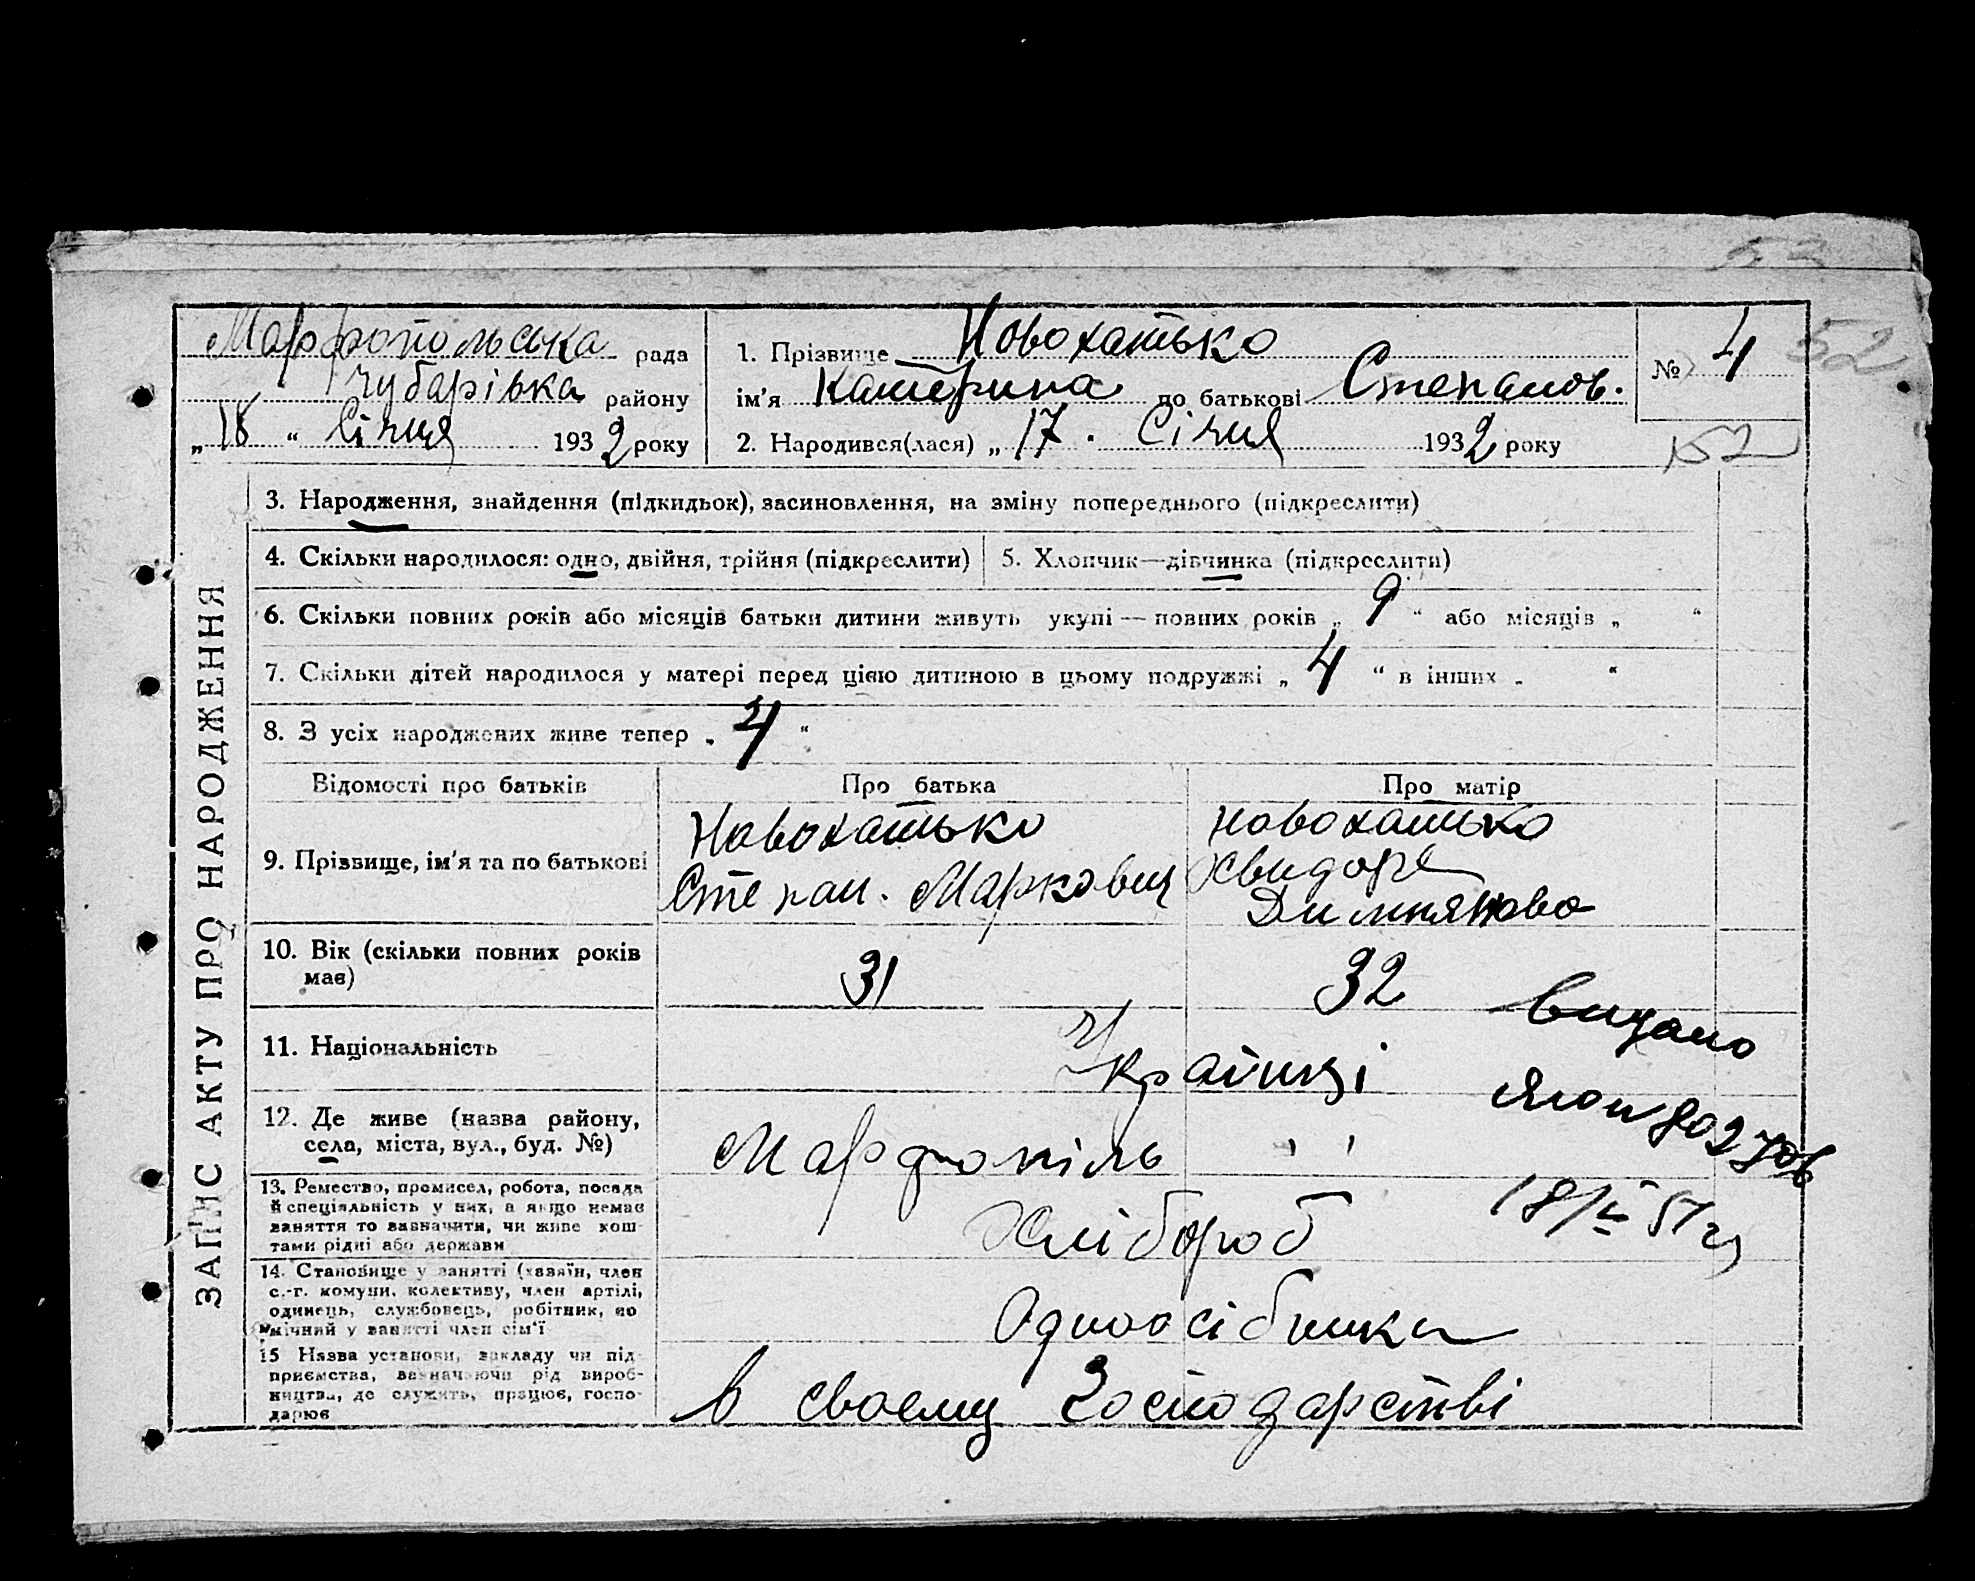 53
Марфопольська рада
Чубарівка району
„18 “ Січня 1932 року
1. Прізвище Новохатько
ім'я Катерина по батькові Степанов.
2. Народився(лася) „17. Січня 1932 року
№ 4
52
152
ЗАПИС АКТУ ПРО НАРОДЖЕННЯ
3. Народження, знайдення (підкидьок), засиновлення, на зміну попереднього (підкреслити)
4. Скільки народилося: одно, двійня, трійня (підкреслити)
5. Хлопчик—дівчинка (підкреслити)
6. Скільки повних років або місяців батьки дитини живуть укупі — повних років „ 9 “ або місяців „ “
7. Скільки дітей народилося у матері перед цією дитиною в цьому подружжі „ 4 “ в інших „ “
8. З усіх народжених живе тепер „ 4 “
Відомості про батьків
Про батька
Про матір
9. Прізвище, ім'я та по батькові
Новохатько
Степан. Маркович
Новохатько
Хвидора
10. Вік (скільки повних років
має)
31
32
11. Національність
Українці
12. Де живе (назва району,
села, міста, вул., буд. №)
Марфопіль
" "
13. Ремество, промисел, робота, посада
й спеціяльність у них, а якщо немає
заняття то зазначити, чи живе кош-
тами рідні або держави
Хлібороб
14. Становище у занятті (хазяїн, член
с.-г. комуни, колективу, член артілі,
одинець, службовець, робітник, по-
мічний у занятті член сім'ї
Одноосібники
15 Назва установи, закладу чи під-
приємства, зазначаючи рід вироб-
ництва, де служить, працює, госпо-
дарює
в своєму Господарстві
Видано
18/V 51 г